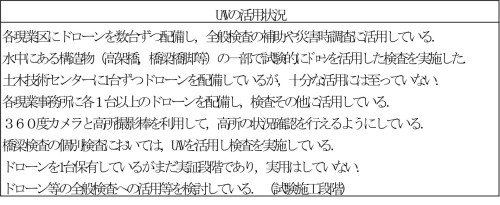 UAVの活用状況
各現業区にドローンを数台ずつ配備し，全般検査の補助や災害時調査に活用している．
水中にある構造物（高架橋，橋梁橋脚等）の一部で試験的にドローンを活用した検査を実施した．
土木技術センターに1台ずつドローンを配備しているが，十分な活用には至っていない．
各現業事務所に各１台以上のドローンを配備し，検査その他に活用している．
３６０度カメラと高所撮影棒を利用して，高所の状況確認を行えるようにしている．
橋梁検査の個別検査においては，UAVを活用し検査を実施している．
ドローンを1台保有しているがまだ実証段階であり，実用はしていない．
ドローン等の全般検査への活用等を検討している．（試験施工段階）